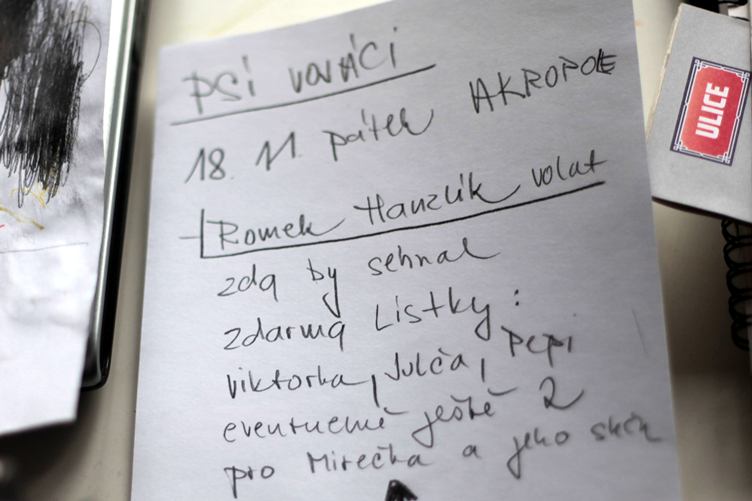 PSi VOJÁCi
18. 11. pátek AKROPOLE
Romek Hanzlík volat
zda by sehnal
zdarma Lístky:
viktorka, Julča, Pepi
eventuelně ještě 2
pro Mirečka a jeho
ULICE